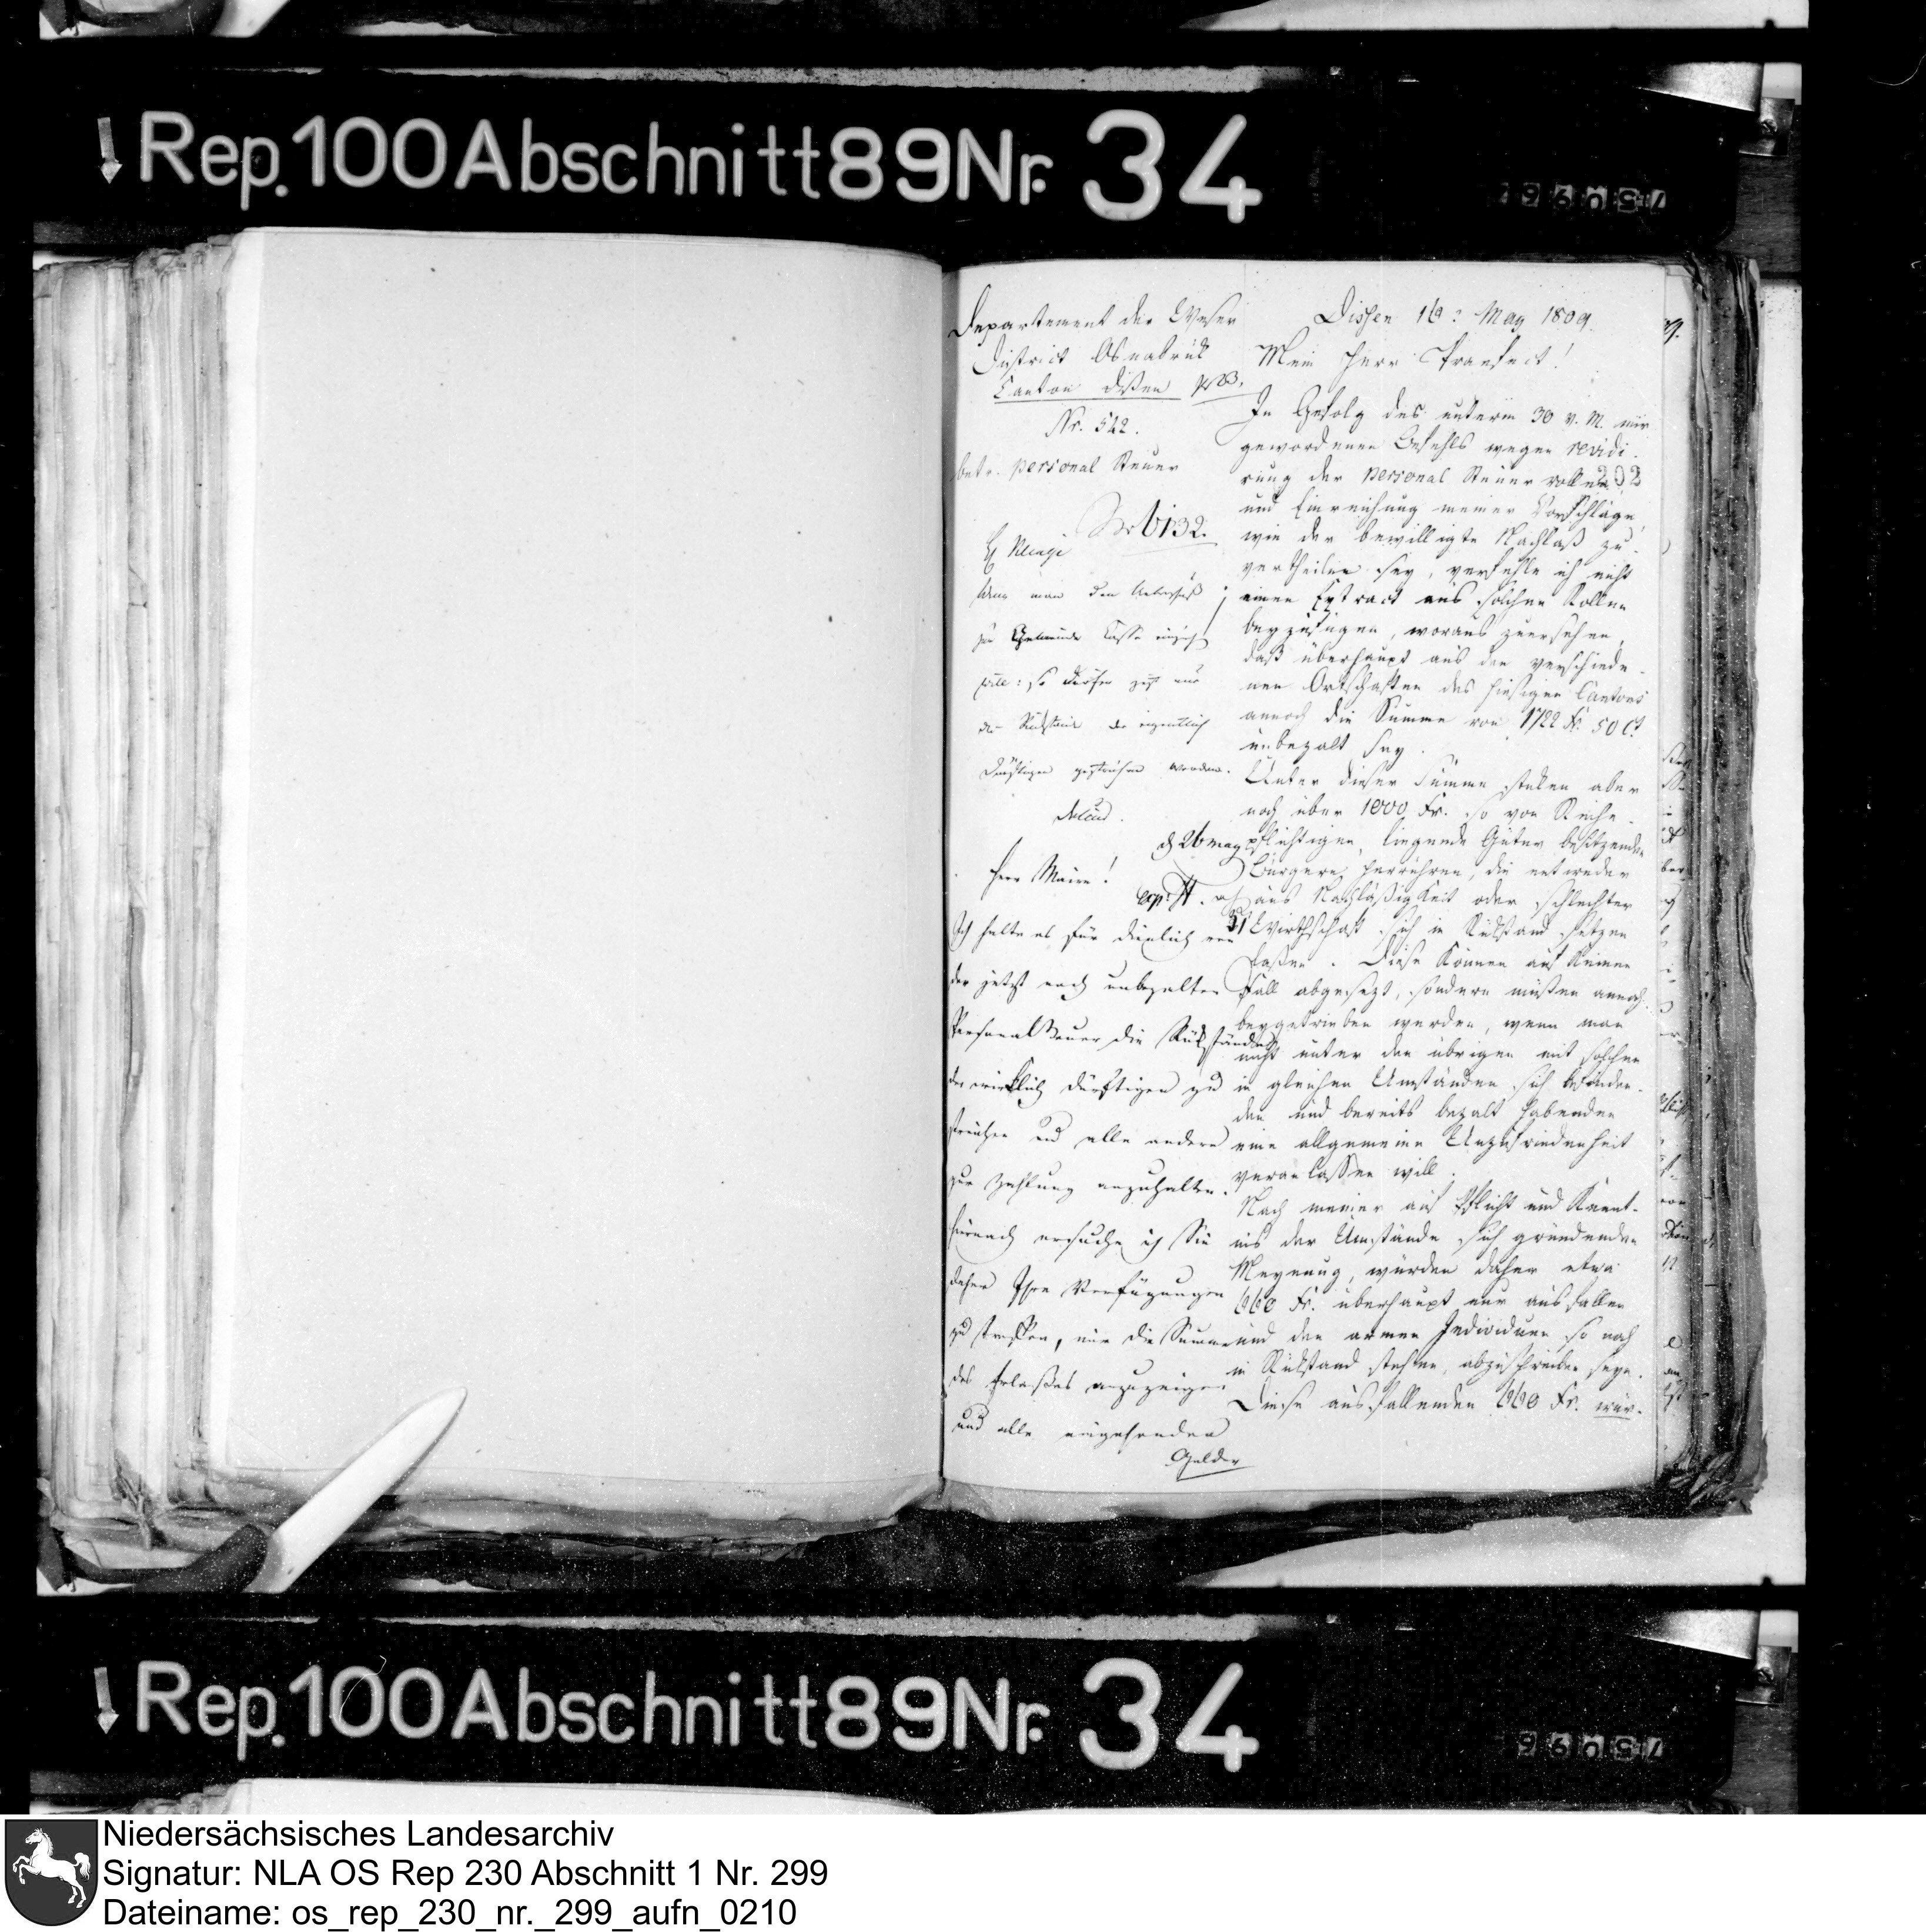 Rep. 100 Abschnitt 89 Nr. 34
Departement der Weser
District Osnabrük
Canton Dißen
Nr. 542.
betr. personal Steuer
Nr 6132.
wenn man den Ueberschuß
der Gemeinde Casse
so dürfen
die Rükstände der eigentlich
Dürftigen gestrichen werden.
d 26 may
Herr Maire!
Ich halte es für dienlich von
der jetzt noch unbezalten
Personalsteuer die Rükstände
der wirklich dürftigen zu
streichen und alle andere
zur Zahlung anzuhalten.
hiernach ersuche ich Sie
daher Ihre Verfügungen
zu treffen, mir die Summe
des Erlaßes anzuzeigen
und alle eingehenden
Gelder
Dissen 16: May 1809.
Mein Herr Praefect!
In Gefolg des unterm 30 v. M. mir
gewordenen Befehls wegen revidi-
rung der personal Steuer rollen
und Einreichung meiner Vorschläge,
wie der bewilligte Nachlaß zu
vertheilen sey, verfehle ich nicht
einen Extract aus solchen Rollen
beyzufügen, woraus zuersehen,
daß überhaupt aus den verschiede-
nen Ortschaften des hiesigen Cantons
annoch die Summe von 1722 Fr. 50 Ct
unbezalt sey.
Unter dieser Summe steken aber
noch über 1000 Fr. so von
pflichtigen, liegende Güter besitzenden
Bürgern herrühren, die entweder
aus Nachläßigkeit oder schlechter
Wirthschaft sich in Rükstand setzen
laßen. Diese können auf keinen
Fall abgesezt, sondern müßen annoch
beygetrieben werden, wenn man
nicht unter den übrigen mit solchen
in gleichen Umständen sich befinden-
den und bereits bezalt habenden
eine allgemeine Unzufriedenheit
veranlassen will.
Nach meiner auf Pflicht und Kennt-
nis der Umstände sich gründenden
Meynung, würden daher etwa
660 Fr. überhaupt nur ausfallen
und den armen Individuen so noch
in Rükstand stehen, abzuschreiben seyn.
Diese ausfallenden 660 Fr. wür-
Rep. 100 Abschnitt 89 Nr. 34
Niedersächsisches Landesarchiv
Signatur: NLA OS Rep 230 Abschnitt 1 Nr. 299
Dateiname: os_rep_230_nr._299_aufn_0210